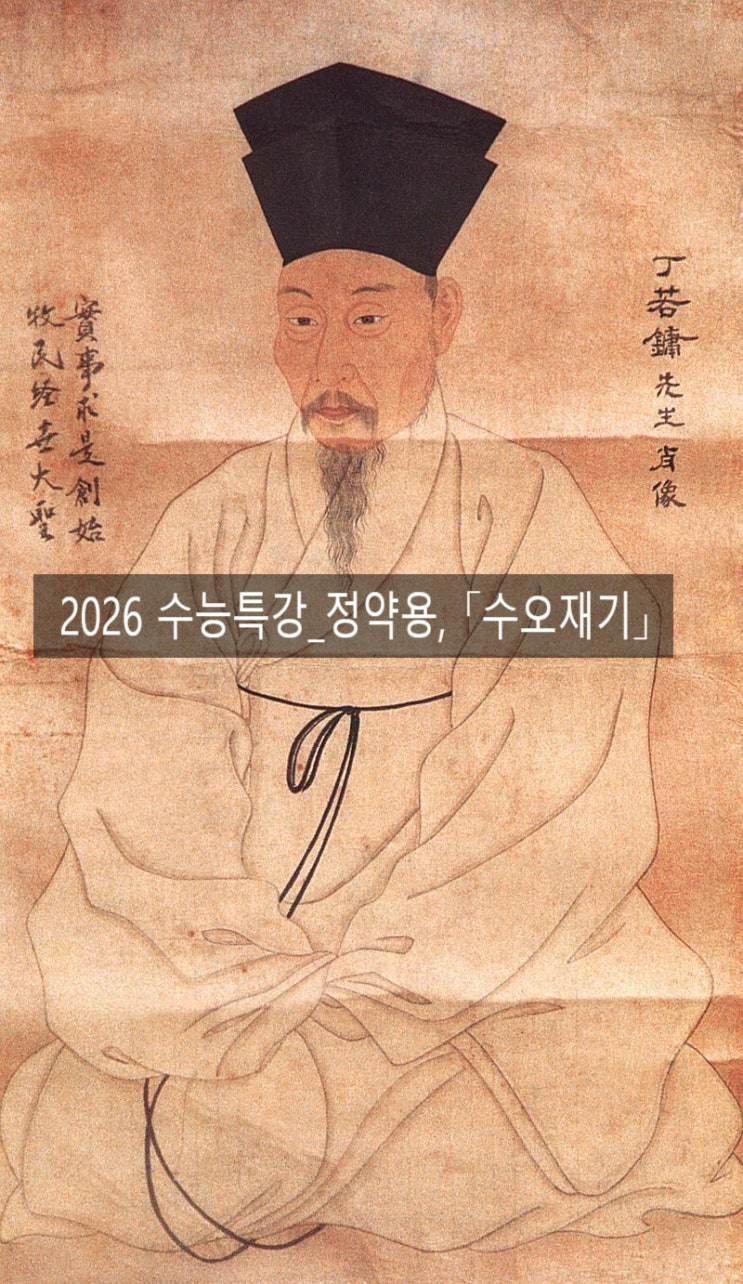 丁若鏞先生肖像
實事求是創始
牧民经世大聖
2026 수능특강_정약용,「수오재기」